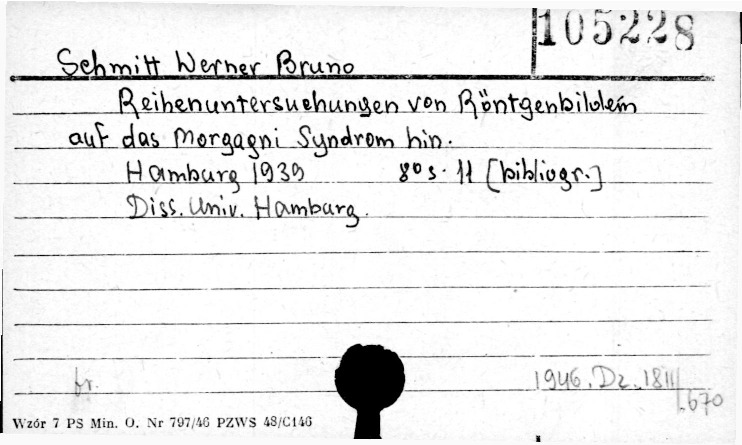 105228
Schmitt Werner Bruno
Reihenuntersuchungen von Röntgenbildern
auf das Morgagni Syndrom hin.
Hamburg 1939 8° s. 11 [bibliogr.]
Diss. Univ. Hamburg.
fr. 1946. Dz. 1811
1.670
Wzór 7 PS Min. O. Nr 797/46 PZWS 48/C146